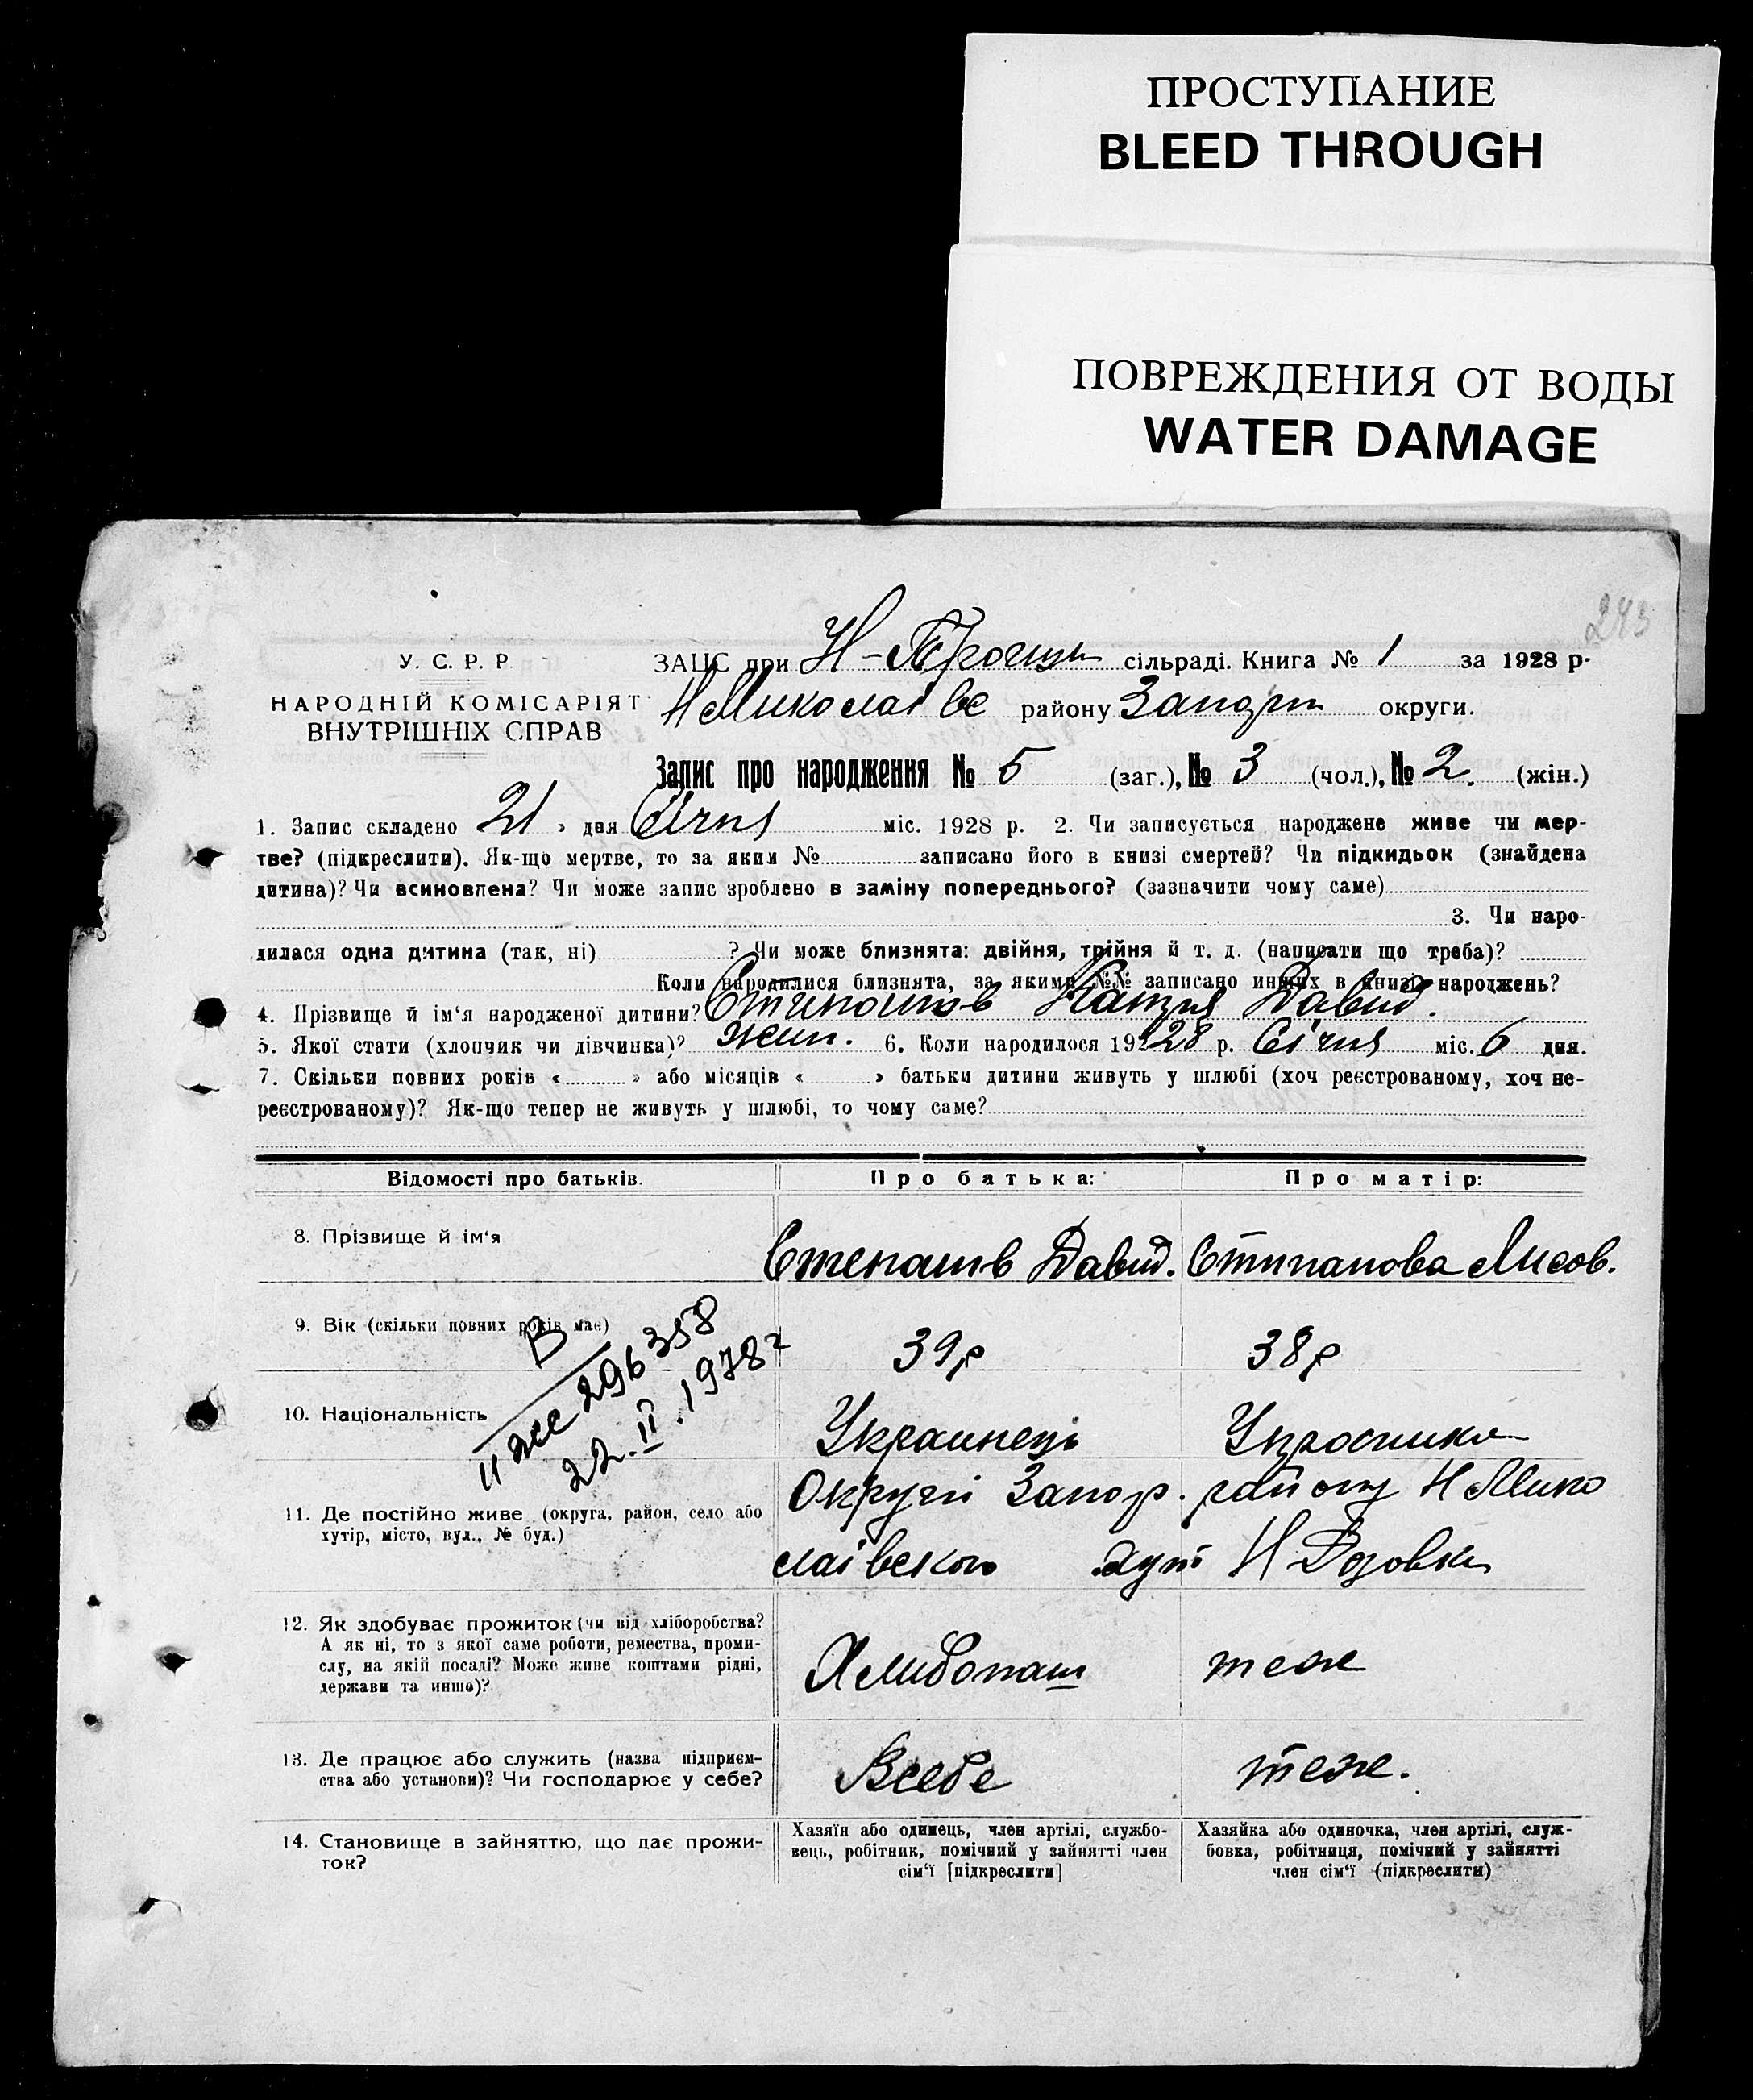 ПРОСТУПАНИЕ
BLEED THROUGH
ПОВРЕЖДЕНИЯ ОТ ВОДЫ
WATER DAMAGE
243
У. С. Р. Р.
НАРОДНІЙ КОМІСАРІЯТ
ВНУТРІШНІХ СПРАВ
ЗАЦС при Н- сільраді. Книга № 1 за 1928 р.
району округи.
Запис про народження № 5 (заг.), № 3 (чол.), № 2. (жін.)
1. Запис складено 21 » дня Січня міс. 1928 р. 2. Чи записується народжене живе чи мер-
тве? (підкреслити). Як-що мертве, то за яким № записано його в книзі смертей? Чи підкидьок (знайдена
дитина)? Чи всиновлена? Чи може запис зроблено в заміну попереднього? (зазначити чому саме)
3. Чи наро-
дилася одна дитина (так, ні) ? Чи може близнята: двійня, трійня й т. д. (написати що треба)?
Коли народилися близнята, за якими №№ записано инших в книзі народжень?
4. Прізвище й ім‘я народженої дитини? Давид.
5. Якої стати (хлопчик чи дівчинка)? жин. 6. Коли народилося 19228 р. Січня міс. 6 дня.
7. Скільки повних років « » або місяців « » батьки дитини живуть у шлюбі (хоч реєстрованому, хоч не-
реєстрованому)? Як-що тепер не живуть у шлюбі, то чому саме?
Відомості про батьків. Про батька: Про матір:
8. Прізвище й ім‘я Давид. Стипанова Лисов.
9. Вік (скільки повних років має) 39р 38р
В
II ЖС 296358
22.II.1978г
10. Національність Украинець
11. Де постійно живе (округа, район, село або
хутір, місто, вул., № буд.)
Округи Запор. району Н Мико
лаівского хут Н
12. Як здобуває прожиток (чи від хліборобства?
А як ні, то з якої саме роботи, ремества, проми-
слу, на якій посаді? Може живе коштами рідні,
держави та инше)?
Хлибопаш теже
13. Де працює або служить (назва підприєм-
ства або установи)? Чи господарює у себе?
Всебе теже.
14. Становище в зайняттю, що дає прожи-
ток?
Хазяїн або одинець, член артілі, службо-
вець, робітник, помічний у зайнятті член
сім‘ї [підкреслити]
Хазяйка або одиночка, член артілі, служ-
бовка, робітниця, помічний у зайнятті
член сім‘ї (підкреслити)